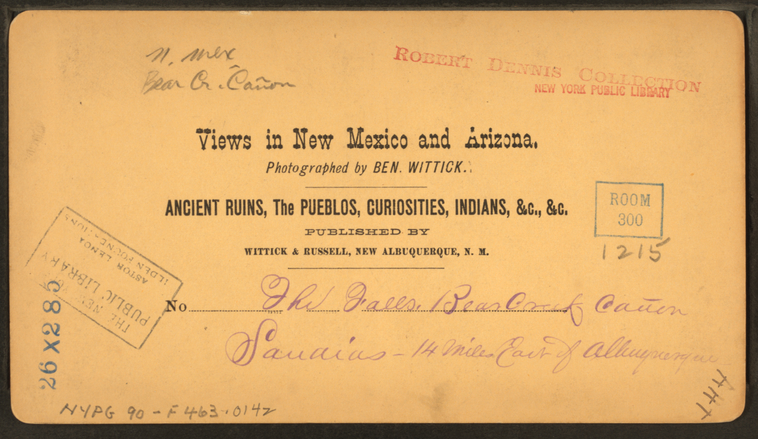 N. Mex
Bear Cr. Cañon
ROBERT DENNIS COLLECTION
NEW YORK PUBLIC LIBRARY
Views in New Mexico and Arizona.
Photographed by BEN. WITTICK.
ANCIENT RUINS, The PUEBLOS, CURIOSITIES, INDIANS, &c., &c.
PUBLISHED BY
WITTICK & RUSSELL, NEW ALBUQUERQUE, N. M.
ROOM
300
1215
THE NEW
PUBLIC LIBRARY
ASTOR LENOX
TILDEN FOUNDATIONS
26X285
No The Falls. Bear Creek Cañon
Sandias - 14 miles East of Albuquerque
NYPG 90-F463.0142